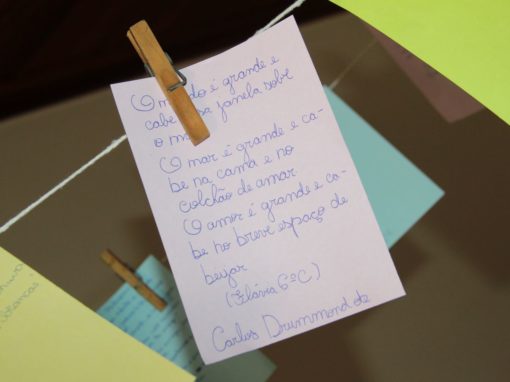 O mundo é grande e
cabe nessa janela sobre
o mar
O mar é grande e ca-
be na cama e no
colchão de amar
O amor é grande e ca-
be no breve espaço de
beijar
(Flávia 6ºC)
Carlos Drummond de